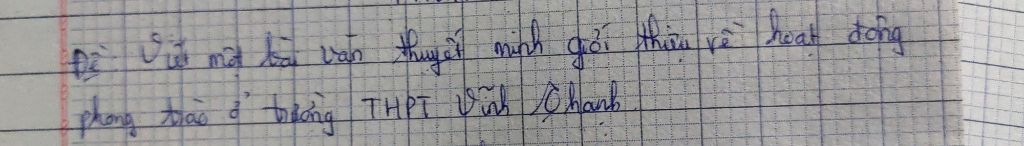 Đề Viết một bài văn thuyết minh giới thiệu về hoạt động
phong trào ở trường THPT Vĩnh Chanh